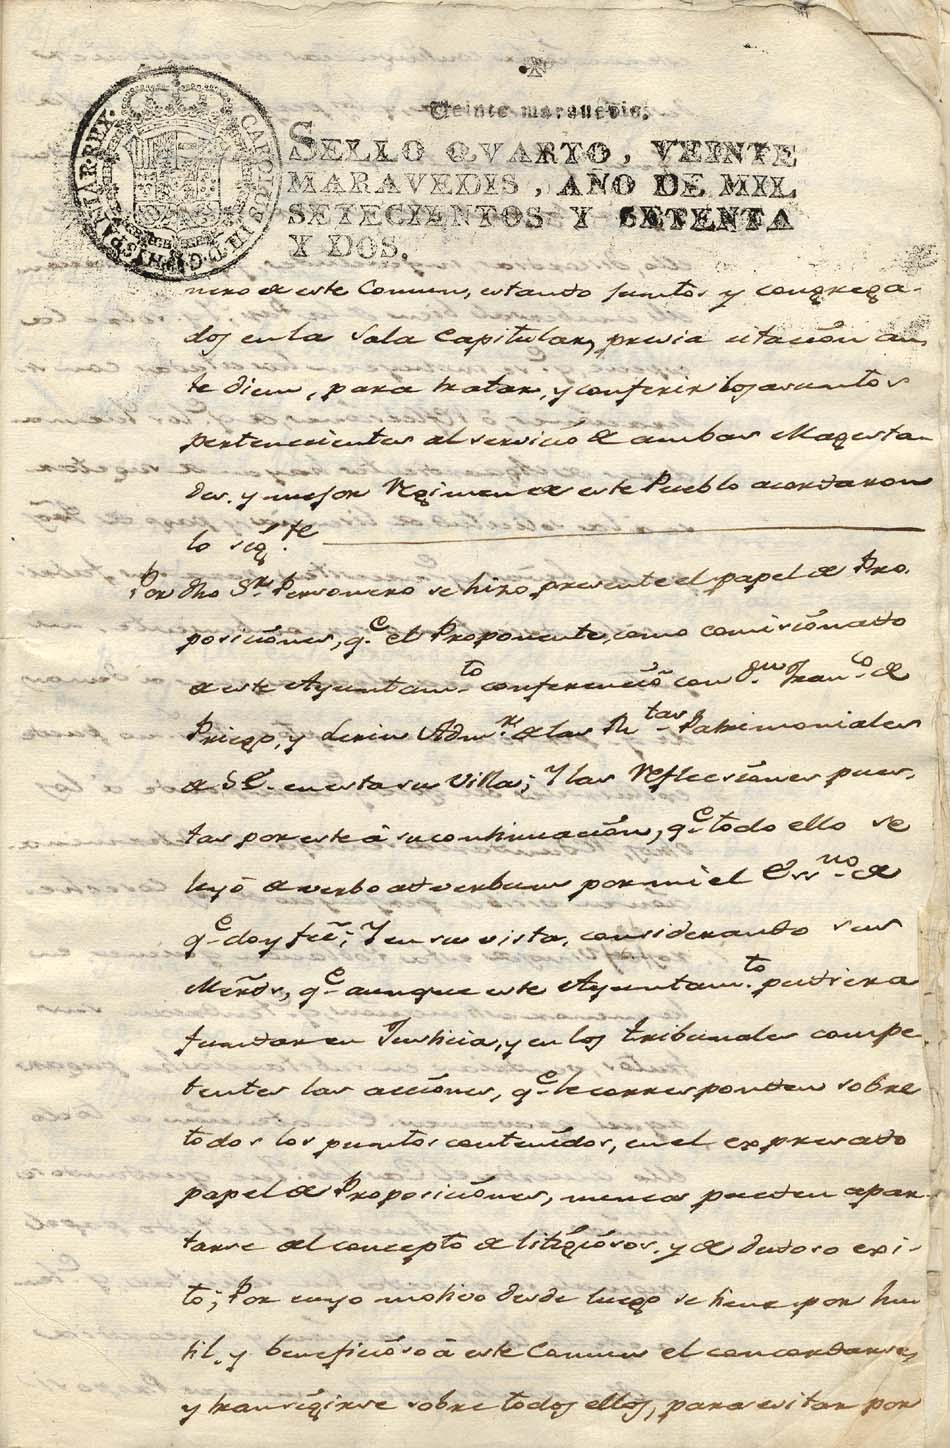 Veinte maravedis.
SELLO QVARTO, VEINTE
MARAVEDIS, AÑO DE MIL
SETECIENTOS Y SETENTA
Y DOS.
CAROLUS III D.G. HISPANIAR. REX.
nero de este Comun, estando juntos y congrega-
dos en la Sala Capitular, previa citacíon an-
te diem, para tratar, y conferir los asuntos
pertenecientes al servicío de ambas Magesta-
des. y mejor Regimen de este Pueblo acordaron
lo sigte
Por dho Sr. Personero se hizo presente el papel de Pro-
posicíones, qe. el Proponente, como comisíonado
de este Ayuntamto. conferencío con Dn. Franco. de
Priego, y Lerin Admr. de las Rtas Patrimoniales
de S.E. en esta su Villa; Y las Reflecsíones pues-
tas por este à su continuacíon, qe. todo ello se
leyó de verbo ad verbum por mi el Essno. de
qe. doy feè; Y en su vista, considerando sus
Merds, qe. aunque este Ayuntamto. pudiera
fundar en Justicia, y en los tribunales compe-
tentes las accíones, qe. le corresponden sobre
todos los puntos contenidos, en el expresado
papel de Proposicíones, nunca pueden apar-
tarse del concepto de litigíosos. y de dudoso exi-
to; Por cuyo motivo desde luego se tiene por hu-
til. y beneficíoso à este Comun el concordarse,
y transigirse sobre todos ellos, para evitar por